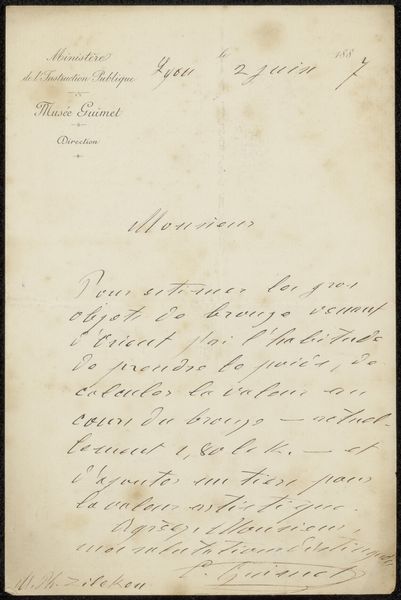 Ministère
de l'Instruction Publique
Musée Guimet
Direction
le 188
Lyon 2 juin 7
Monsieur
Pour estimer les gros
objets de bronze venant
d'orient j'ai l'habitude
de prendre le poids, de
calculer la valeur au
cours du bronze – actuel-
lement 1,80 le k. – et
d'ajouter un tiers pour
la valeur artistique.
Agréez, Monsieur,
mes salutations distinguées
E. Guimet
M. Ph. Zilcken